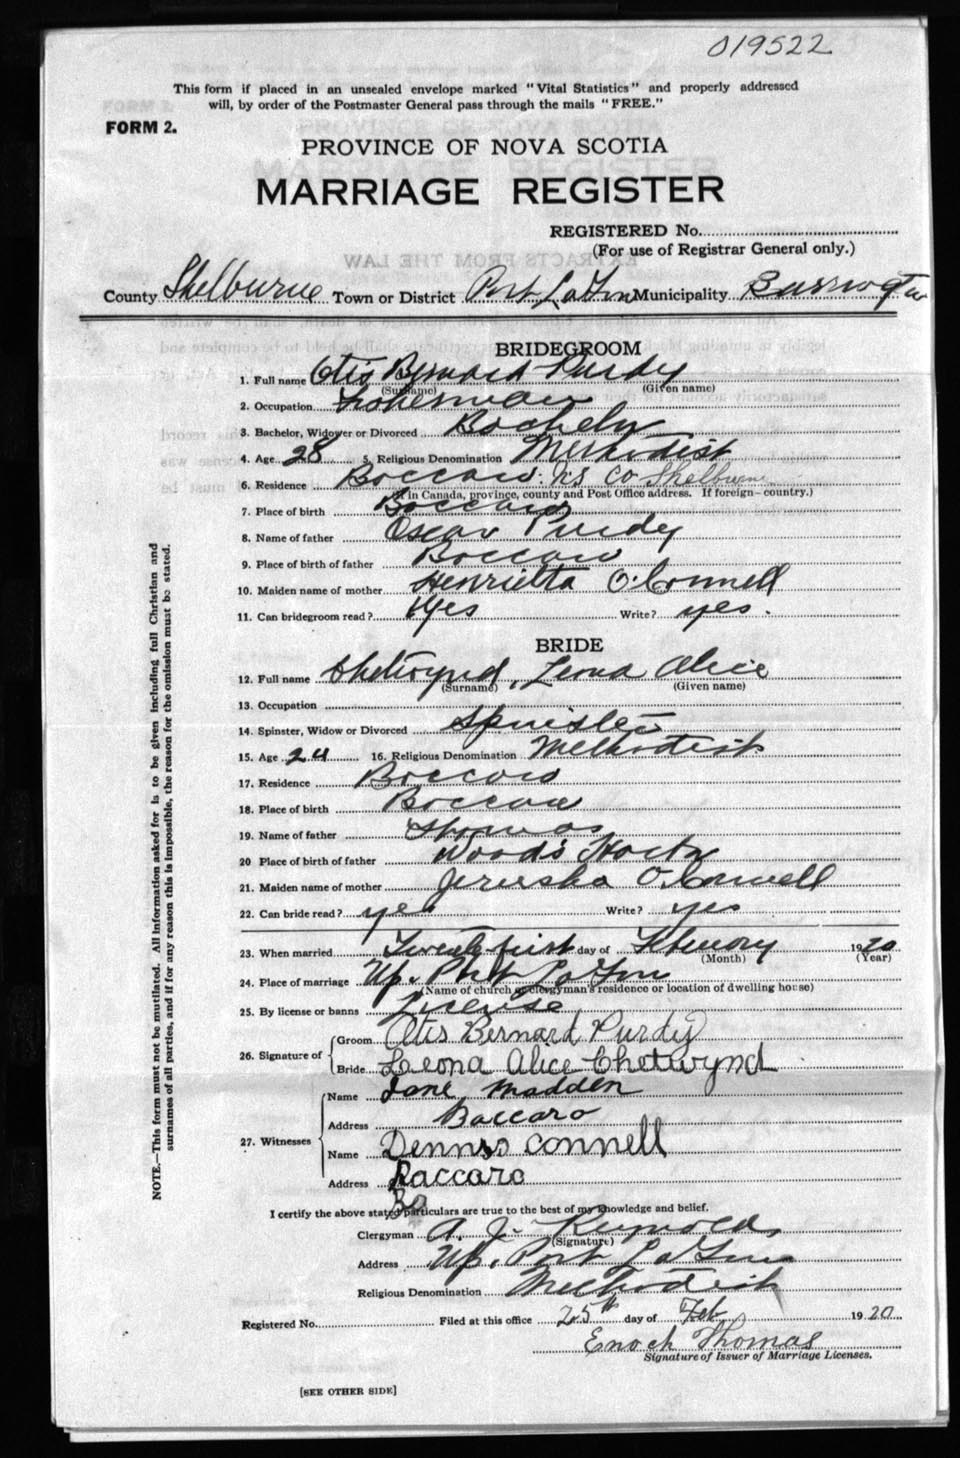 019522
This form if placed in an unsealed envelope marked "Vital Statistics" and properly addressed
will, by order of the Postmaster General pass through the mails "FREE."
FORM 2.
PROVINCE OF NOVA SCOTIA
MARRIAGE REGISTER
REGISTERED No.
(For use of Registrar General only.)
EXTRACTS FROM THE LAW
County Shelburne Town or District Port LaTour Municipality Barrington
BRIDEGROOM
1. Full name Otis Bernard Purdy
(Surname) (Given name)
2. Occupation Fisherman
3. Bachelor, Widower or Divorced Bachelor
4. Age 28 5. Religious Denomination Methodist
6. Residence Baccaro. NS Co Shelburne
(If in Canada, province, county and Post Office address. If foreign—country.)
7. Place of birth Baccaro
8. Name of father Oscar Purdy
9. Place of birth of father Baccaro
10. Maiden name of mother Henrietta O'Connell
11. Can bridegroom read? Yes Write? yes.
BRIDE
12. Full name Chetwynd, Leona Alice
(Surname) (Given name)
13. Occupation
14. Spinster, Widow or Divorced Spinster
15. Age 24 16. Religious Denomination Methodist
17. Residence Baccaro
18. Place of birth Baccaro
19. Name of father Thomas
20 Place of birth of father Wood's Harbor
21. Maiden name of mother Jerusha O'Connell
22. Can bride read? yes Write? yes
23. When married Twenty-first day of February 1920
(Month) (Year)
24. Place of marriage Up. Port LaTour
(Name of church or clergyman's residence or location of dwelling house)
25. By license or banns License
26. Signature of Groom Otis Bernard Purdy
Bride Leona Alice Chetwynd
27. Witnesses Name Jane Madden
Address Baccaro
Name Dennis Connell
Address Baccaro
Ba
I certify the above stated particulars are true to the best of my knowledge and belief.
Clergyman A. J. Reynolds
(Signature)
Address Up. Port LaTour
Religious Denomination Methodist
Registered No. Filed at this office 25th day of Feb 1920
Enoch Thomas
Signature of Issuer of Marriage Licenses.
[SEE OTHER SIDE]
NOTE.—This form must not be mutilated. All information asked for is to be given including full Christian and
surnames of all parties, and if for any reason this is impossible, the reason for the omission must be stated.